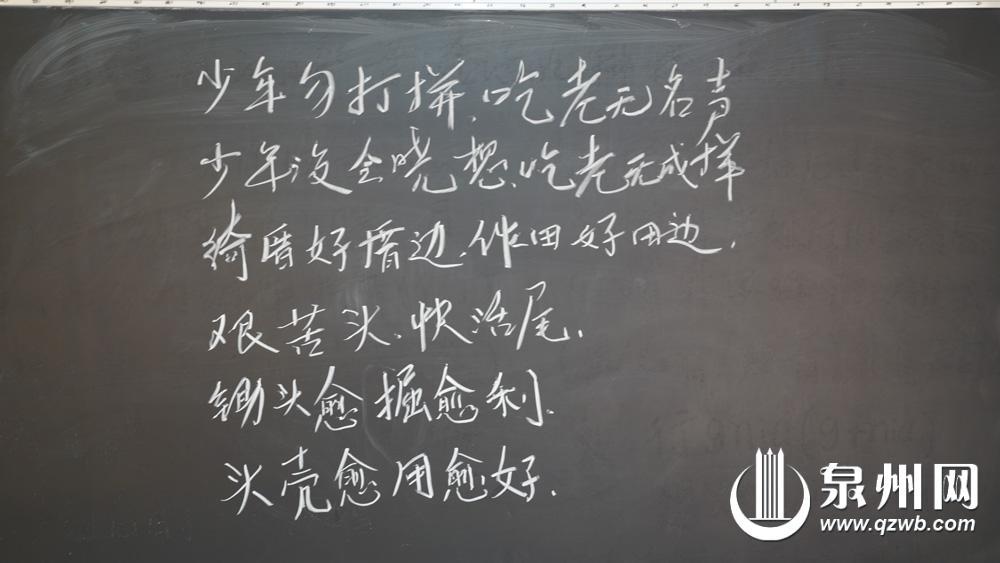 少年勿打拼、吃老无名声
少年没会晓想、吃老无成样
徛厝好厝边、作田好田边.
艰苦头、快活尾.
锄头愈掘愈利、
头壳愈用愈好.
泉州网
www.qzwb.com